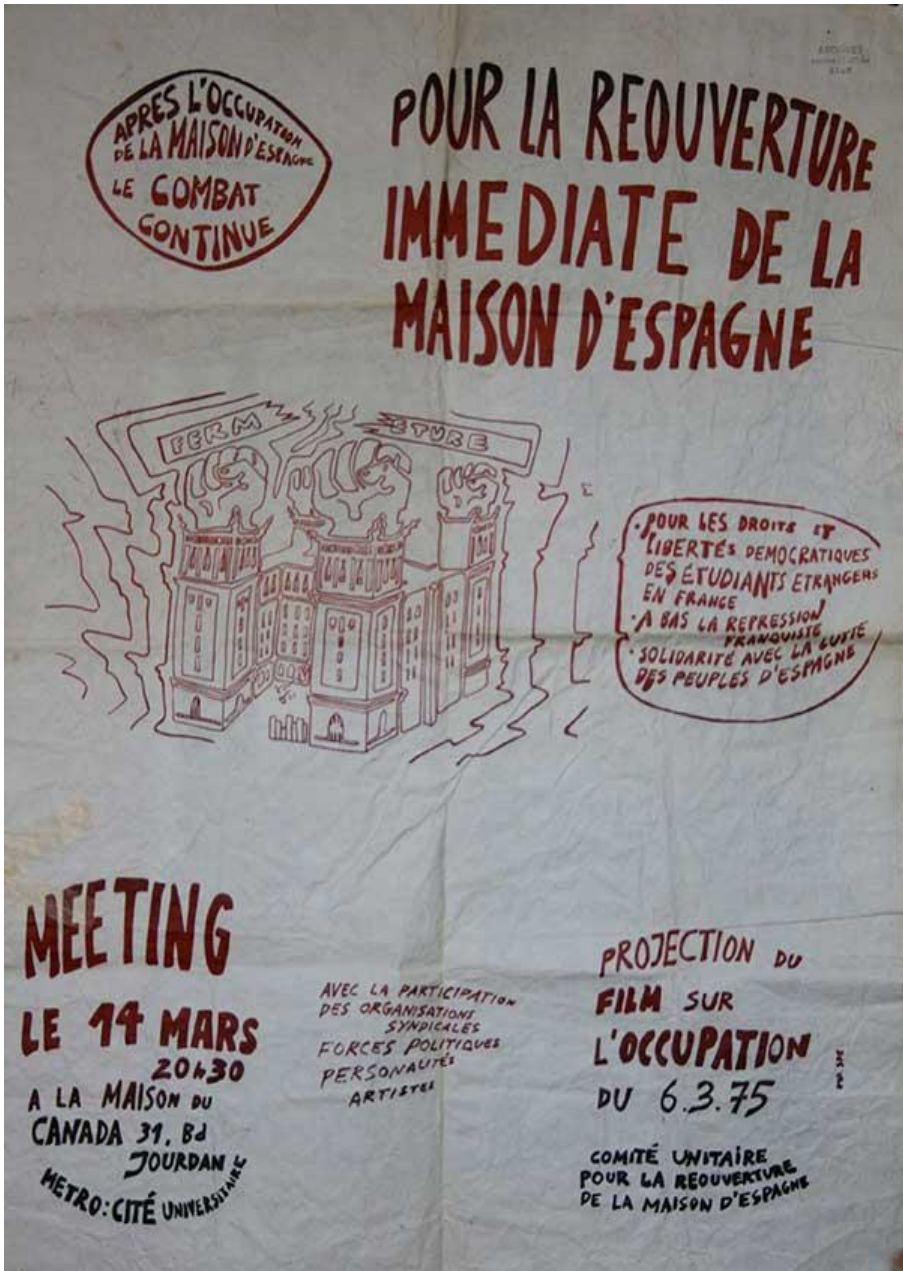 APRES L'OCCUPATION
DE LA MAISON D'ESPAGNE
LE COMBAT
CONTINUE
POUR LA REOUVERTURE
IMMEDIATE DE LA
MAISON D'ESPAGNE
FERM ETURE
• POUR LES DROITS ET
LIBERTÉS DEMOCRATIQUES
DES ÉTUDIANTS ETRANGERS
EN FRANCE
• A BAS LA REPRESSION
FRANQUISTE
• SOLIDARITÉ AVEC LA LUTTE
DES PEUPLES D'ESPAGNE
MEETING
LE 14 MARS
20h30
A LA MAISON DU
CANADA 31, Bd
JOURDAN
METRO: CITÉ UNIVERSITAIRE
AVEC LA PARTICIPATION
DES ORGANISATIONS
SYNDICALES
FORCES POLITIQUES
PERSONALITÉS
ARTISTES
PROJECTION DU
FILM SUR
L'OCCUPATION
DU 6.3.75
COMITÉ UNITAIRE
POUR LA REOUVERTURE
DE LA MAISON D'ESPAGNE